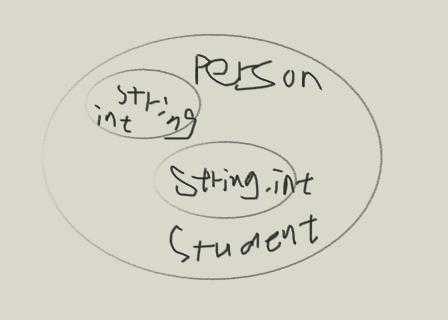 Person
string
int
String.int
Student